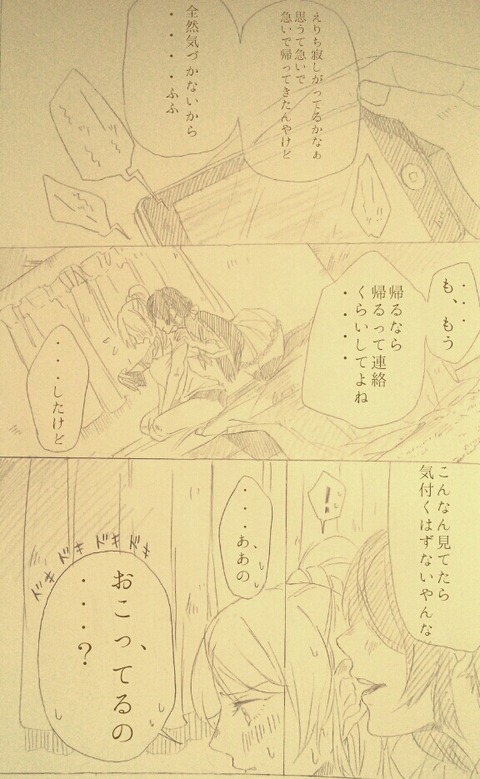 えりち寂しがってるかなぁ
思うて急いで
急いで帰ってきたんやけど
全然気づかないから
・・・・・ふふ
・・・
も、もう
帰るなら
帰るって連絡
くらいしてよね
・・・・
・・・したけど
こんなん見てたら
気付くはずないやんな
!!
・・・、ああの
ドキドキドキドキ
おこってるの、
・・・・?